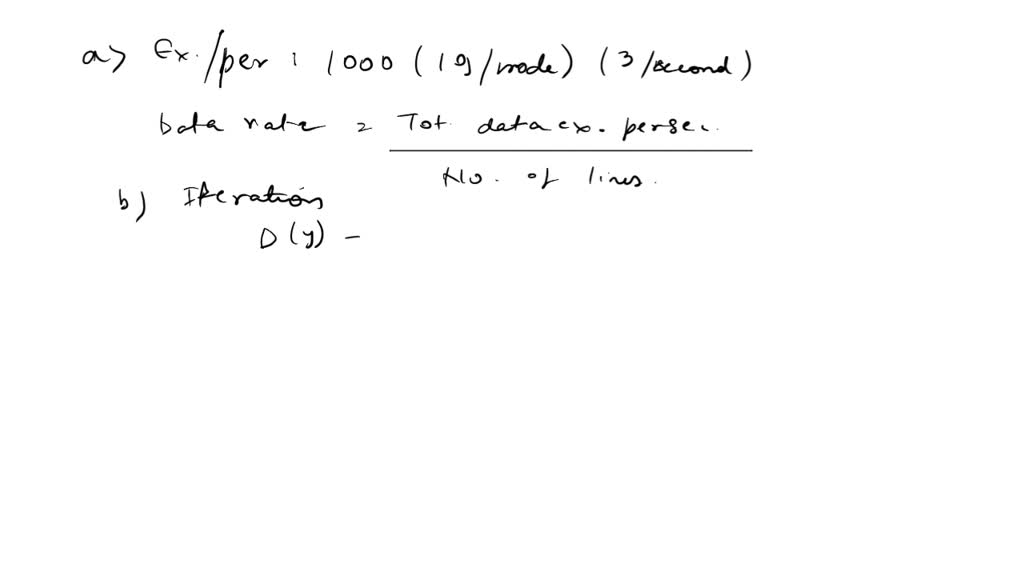 a> Ex./per : 1000 (19/node) (3/second)
Data rate = Tot. data ex. persec.
No. of lines.
b) Iteration
D(y) -